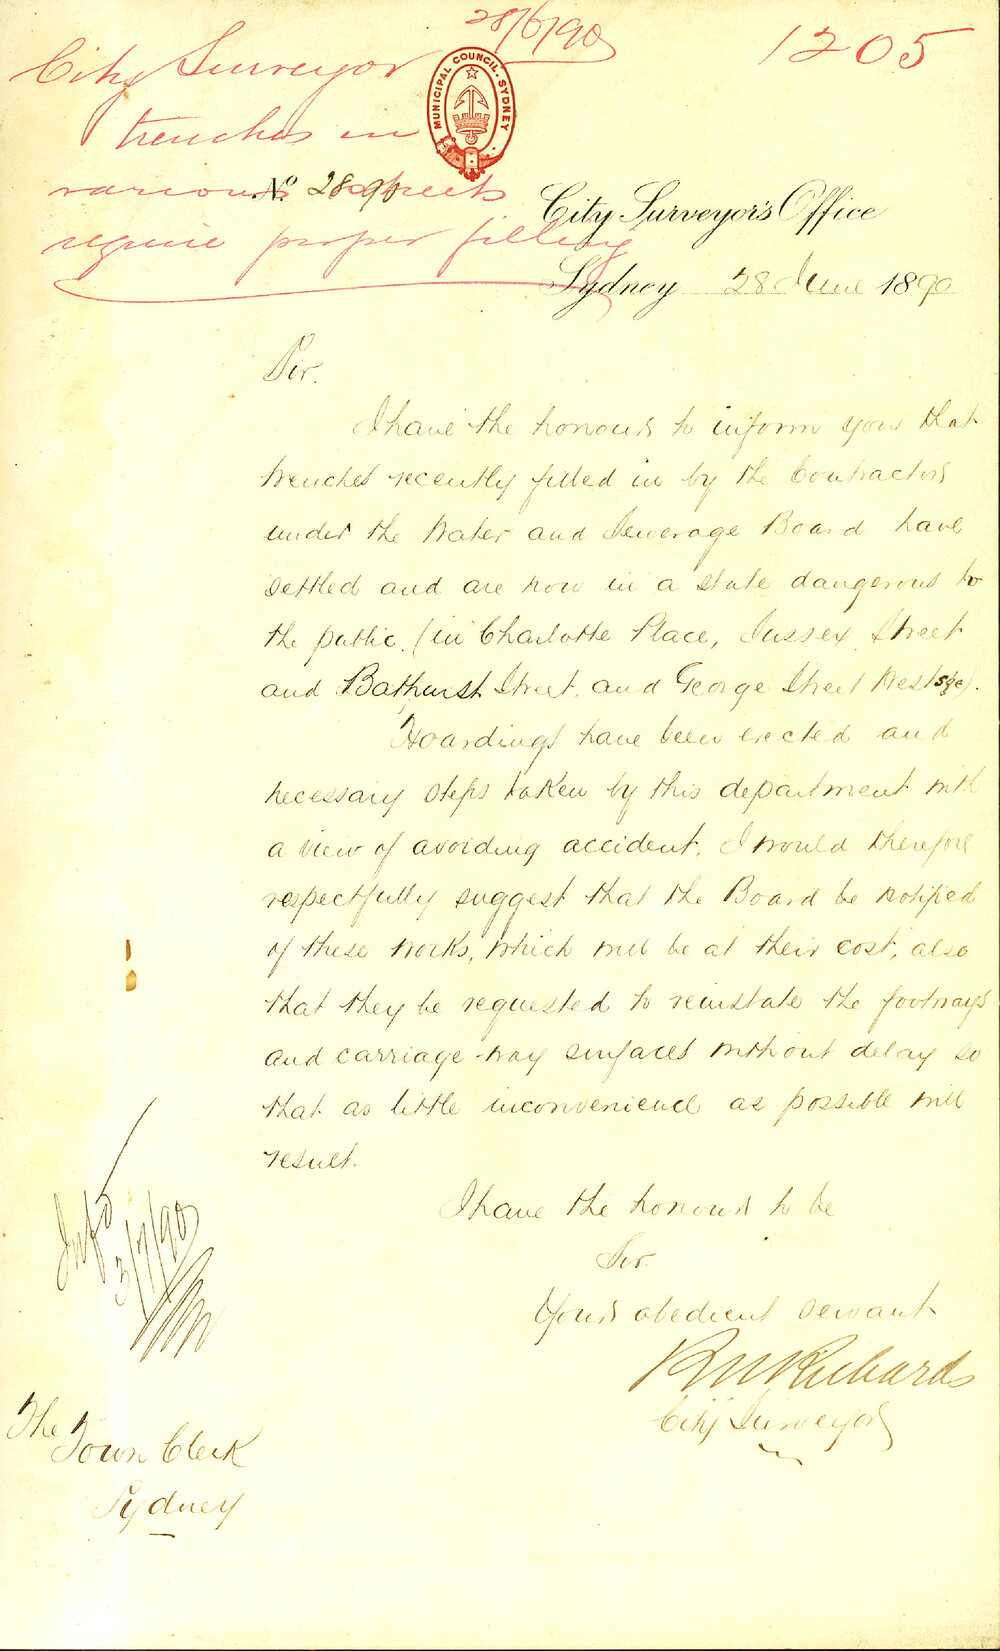 28/6/90
1205
City Surveyor
trenches in
various streets
require proper filling
MUNICIPAL COUNCIL. SYDNEY
No. 28.90
City Surveyor's Office
Sydney 28 June 1890
Sir.
I have the honour to inform you that
trenches recently filled in by the Contractors
under the Water and Sewerage Board have
settled and are now in a state dangerous to
the public. (in Charlotte Place, Sussex Street
and Bathurst Street, and George Street West side).
Hoardings have been erected and
necessary steps taken by this department with
a view of avoiding accident. I would therefore
respectfully suggest that the Board be notified
of these works, which will be at their cost, also
that they be requested to reinstate the footways
and carriage-way surfaces without delay so
that as little inconvenience as possible will
result.
I have the honour to be
Sir.
Your obedient servant
Richards
City Surveyor
3/7/90
The
Town Clerk
Sydney